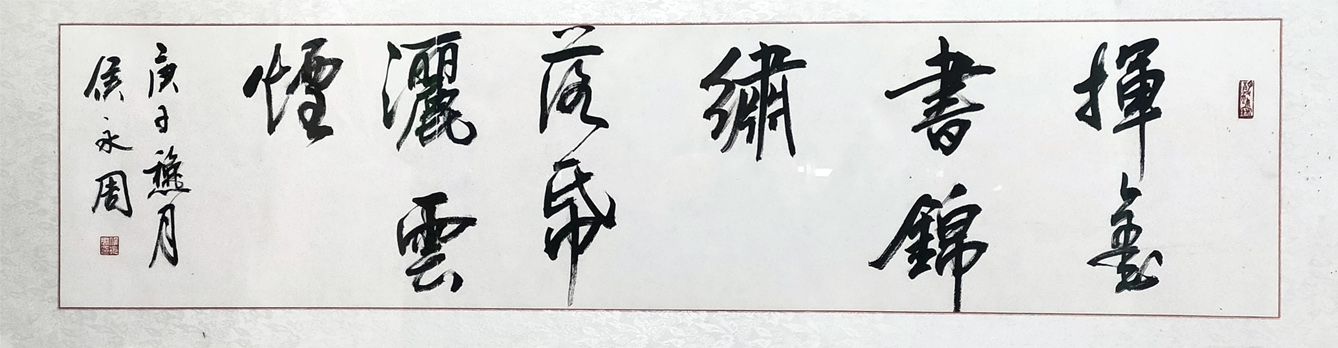 揮毫
書錦
繡
落帋
灑雲
煙
庚子穐月
侯永周